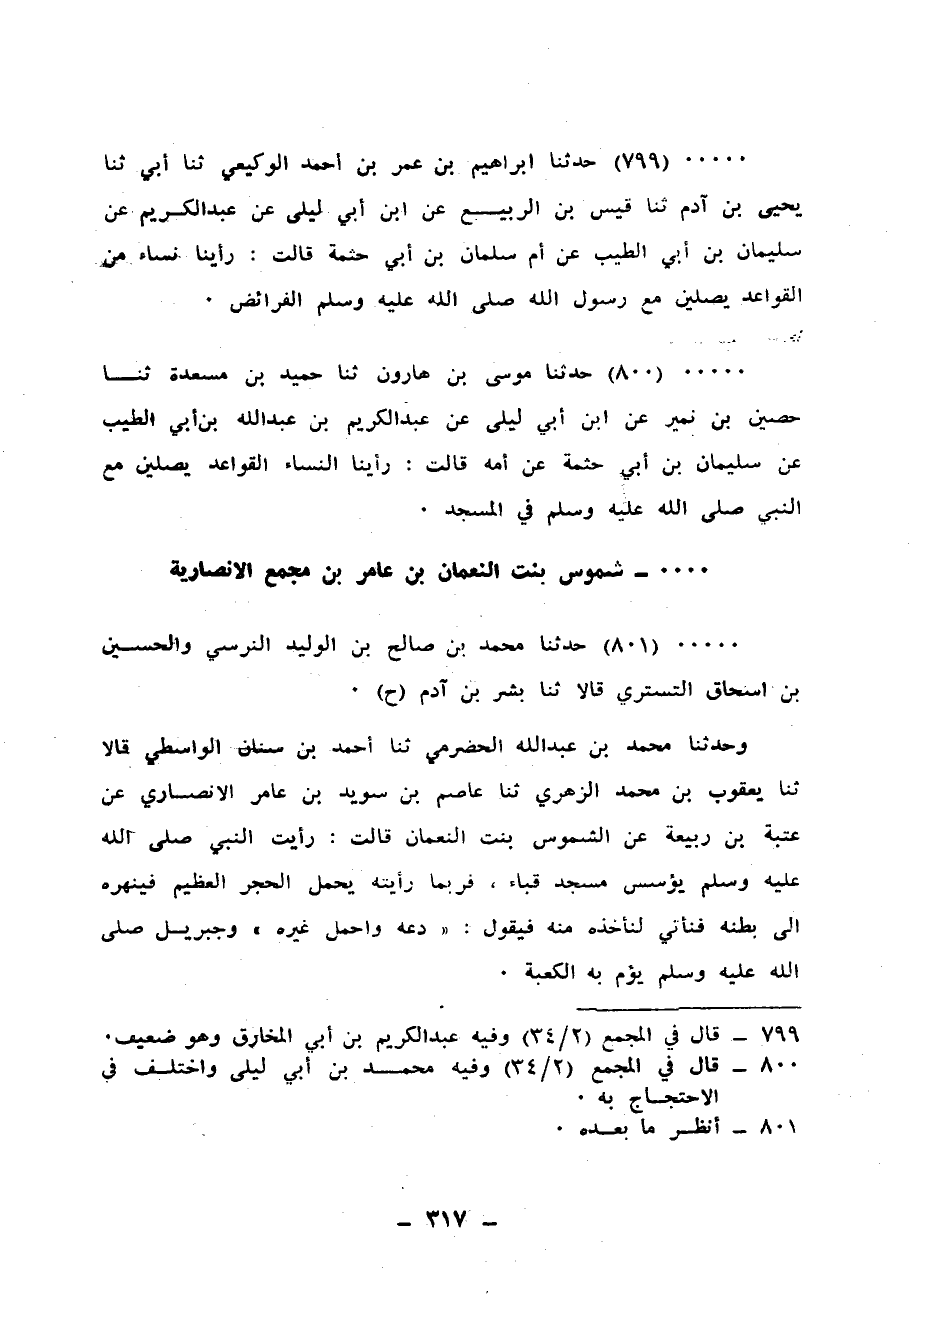 ..... (٧٩٩) حدثنا ابراهيم بن عمر بن أحمد الوكيعي ثنا أبي ثنا
يحيى بن آدم ثنا قيس بن الربيع عن ابن أبي ليلى عن عبدالكريم عن
سليمان بن أبي الطيب عن أم سلمان بن أبي حثمة قالت : رأينا نساء من
القواعد يصلين مع رسول الله صلى الله عليه وسلم الفرائض .
..... (٨٠٠) حدثنا موسى بن هارون ثنا حميد بن مسعدة ثنا
حصين بن نمير عن ابن أبي ليلى عن عبدالكريم بن عبدالله بن أبي الطيب
عن سليمان بن أبي حثمة عن أمه قالت : رأينا النساء القواعد يصلين مع
النبي صلى الله عليه وسلم في المسجد .
.... ــ شموس بنت النعمان بن عامر بن مجمع الانصارية
..... (٨٠١) حدثنا محمد بن صالح بن الوليد النرسي والحسين
بن اسحاق التستري قالا ثنا بشر بن آدم (ح) .
وحدثنا محمد بن عبدالله الحضرمي ثنا أحمد بن سنان الواسطي قالا
ثنا يعقوب بن محمد الزهري ثنا عاصم بن سويد بن عامر الانصاري عن
عتبة بن ربيعة عن الشموس بنت النعمان قالت : رأيت النبي صلى الله
عليه وسلم يؤسس مسجد قباء ، فربما رأيته يحمل الحجر العظيم فينهره
الى بطنه فنأتي لنأخذه منه فيقول : « دعه واحمل غيره » وجبريل صلى
الله عليه وسلم يؤم به الكعبة .
٧٩٩ ــ قال في المجمع (٣٤/٢) وفيه عبدالكريم بن أبي المخارق وهو ضعيف .
٨٠٠ ــ قال في المجمع (٣٤/٢) وفيه محمد بن أبي ليلى واختلف في
الاحتجاج به .
٨٠١ ــ أنظر ما بعده .
ــ ٣١٧ ــ